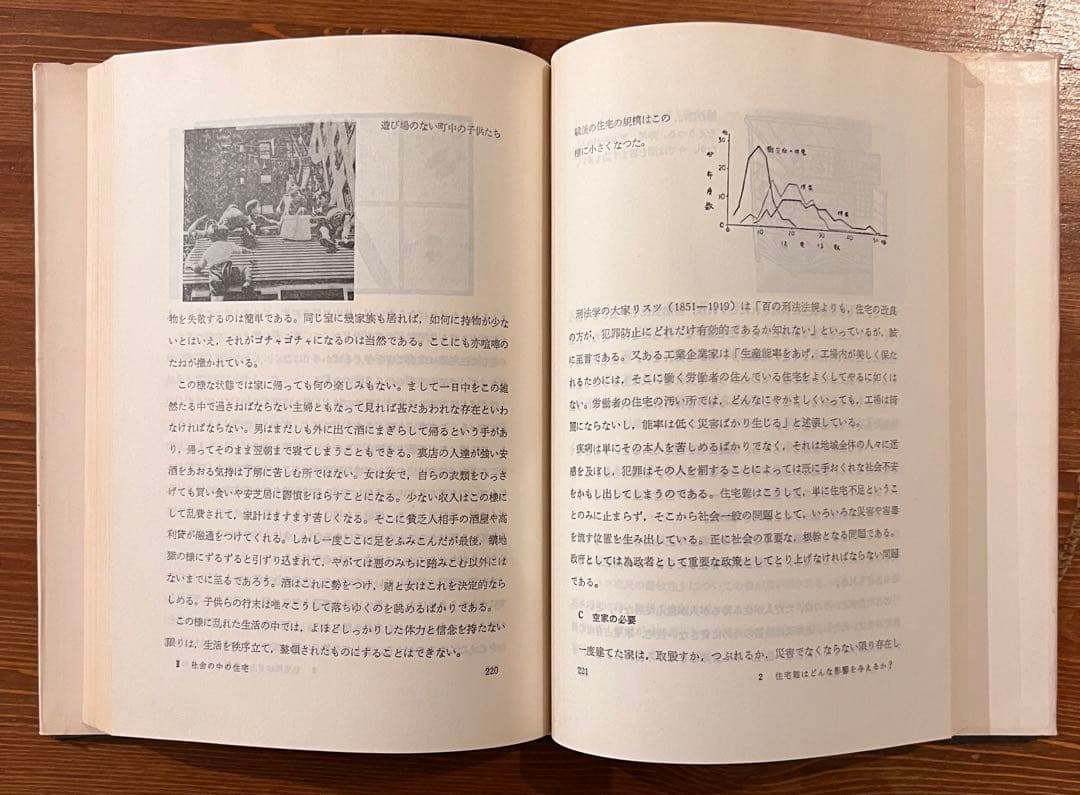 遊び場のない町中の子供たち
物を失敬するのは簡単である。同じ室に幾家族も居れば，如何に持物が少な
いとはいえ，それがゴチャゴチャになるのは当然である。ここにも亦喧嘩の
たねが撒かれている。
この様な状態では家に帰っても何の楽しみもない。まして一日中をこの雑
然たる中で過さねばならない主婦ともなって見れば甚だあわれな存在といわ
なければならない。男はまだしも外に出て酒にまぎらして帰るという手があ
り，帰ってそのまま翌朝まで寝てしまうこともできる。裏店の人達が強い安
酒をあおる気持は了解に苦しむ所ではない。女は女で，自らの衣類をひっさ
げても買い食いや安芝居に鬱憤をはらすことになる。少ない収入はこの様に
して乱費されて，家計はますます苦しくなる。そこに貧乏人相手の酒屋や高
利貸が融通をつけてくれる。しかし一度ここに足をふみこんだが最後，蟻地
獄の様にずるずると引ずり込まれて，やがては悪のみちに踏みこむ以外には
ないまでに至るであろう。酒はこれに勢をつけ，賭と女はこれを決定的なら
しめる。子供らの行末は唯々こうして落ちゆくのを眺めるばかりである。
この様に乱れた生活の中では，よほどしっかりした体力と信念を持たない
限りは，生活を秩序立て，整頓されたものにすることはできない。
Ⅱ 社会の中の住宅
220
戦後の住宅の規模はこの
様に小さくなつた。
%
30
20
10
0
10
20
30
40
50
坪
分布度数
住宅坪数
刑法学の大家リスツ（1851―1919）は「百の刑法法規よりも，住宅の改良
の方が，犯罪防止にどれだけ有効的であるか知れない」といっているが，誠
に至言である。又ある工業企業家は「生産能率をあげ，工場内が美しく保た
れるためには，そこに働く労働者の住んでいる住宅をよくしてやるに如くは
ない。労働者の住宅の汚い所では，どんなにやかましくいっても，工場は綺
麗にならないし，能率は低く災害ばかり生じる」と述懐している。
疾病は単にその本人を苦しめるばかりでなく，それは地域全体の人々に迷
惑を及ぼし，犯罪はその人を罰することによっては既に手おくれな社会不安
をかもし出してしまうのである。住宅難はこうして，単に住宅不足というこ
とのみに止まらず，そこから社会一般の問題として，いろいろな災害や害毒
を流す位置を生み出している。正に社会の重要な，根幹となる問題である。
政府としては為政者として重要な政策としてとり上げなければならない問題
である。
C 空家の必要
一度建てた家は，取毀すか，つぶれるか，災害でなくならない限り存在し
221
2 住宅難はどんな影響を与えるか？